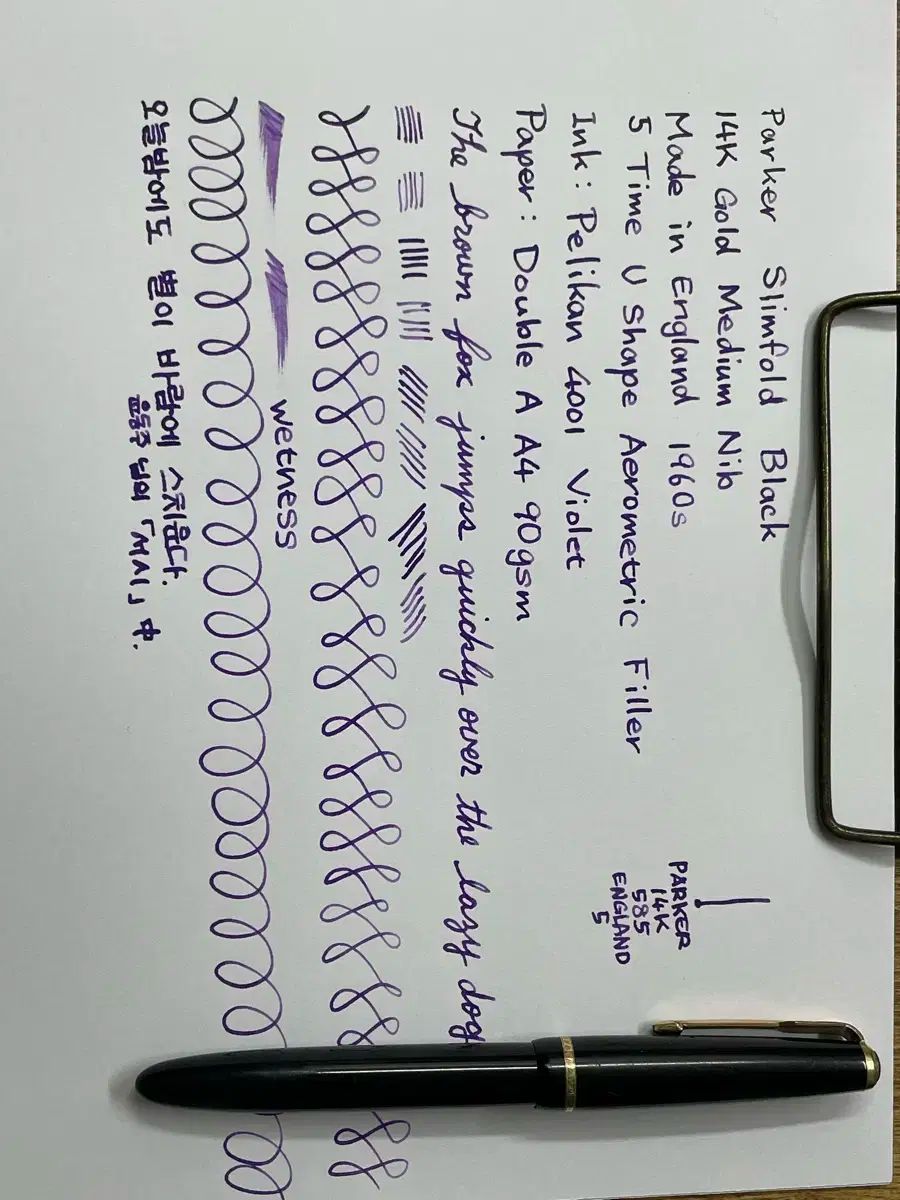 Parker Slimfold Black
14K Gold Medium Nib
Made in England 1960s
5 Time U Shape Aerometric Filler
Ink: Pelikan 4001 Violet
Paper: Double A A4 90gsm
PARKER
14K
585
ENGLAND
5
The brown fox jumps quickly over the lazy dog
wetness
오늘밤에도 별이 바람에 스치운다.
윤동주 님의 「서시」 中.